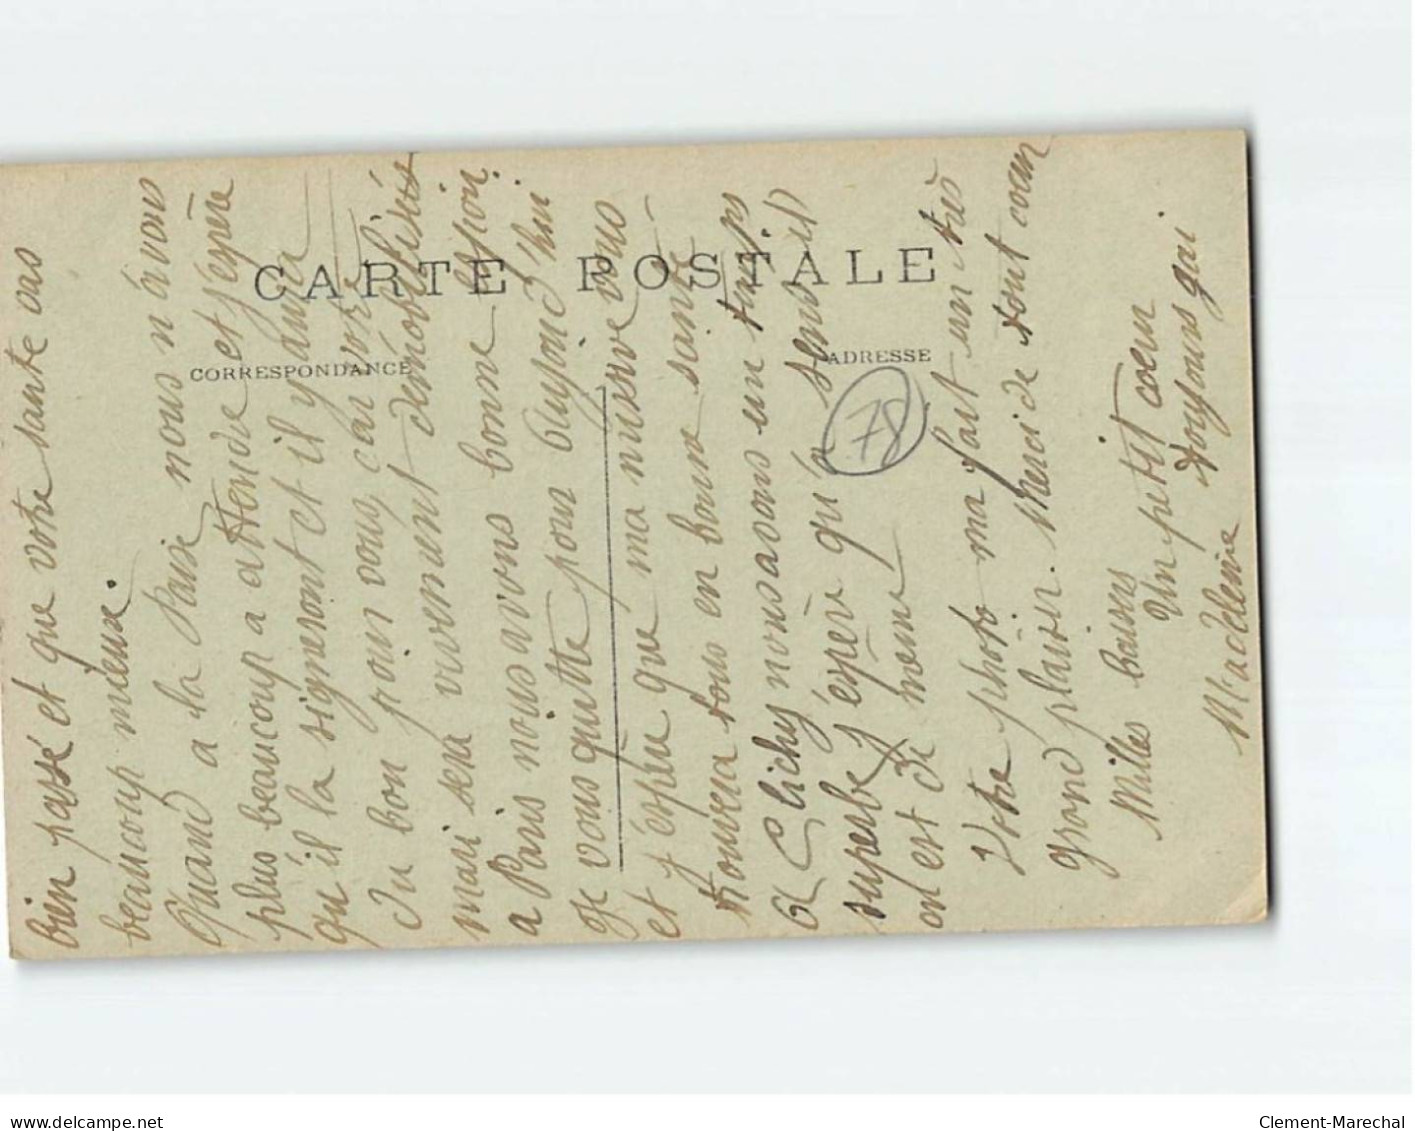 CARTE POSTALE
CORRESPONDANCE
ADRESSE
78
bien passé et que votre santé vas
beaucoup mieux.
Quand a la Paix nous n'avons
plus beaucoup a attendre et j'espère
qu'il la signeront et il y aura
du bon pour vous, car votre
mari sera vivement démobilisés
a Paris nous avons bonne espion.
Je vous quitte pour aujourd'hui
et j'espère que ma missive vous
trouvera tous en bonne santé
a Clichy nous avons un temps
superbe j'espère qu'à Senlis
on est de meme
Votre photo ma fait un très
grand plaisir. Merci de tout coeur
Milles baisers
Un petit coeur
toujours gai
Madeleine
Clement-Marechal
www.delcampe.net